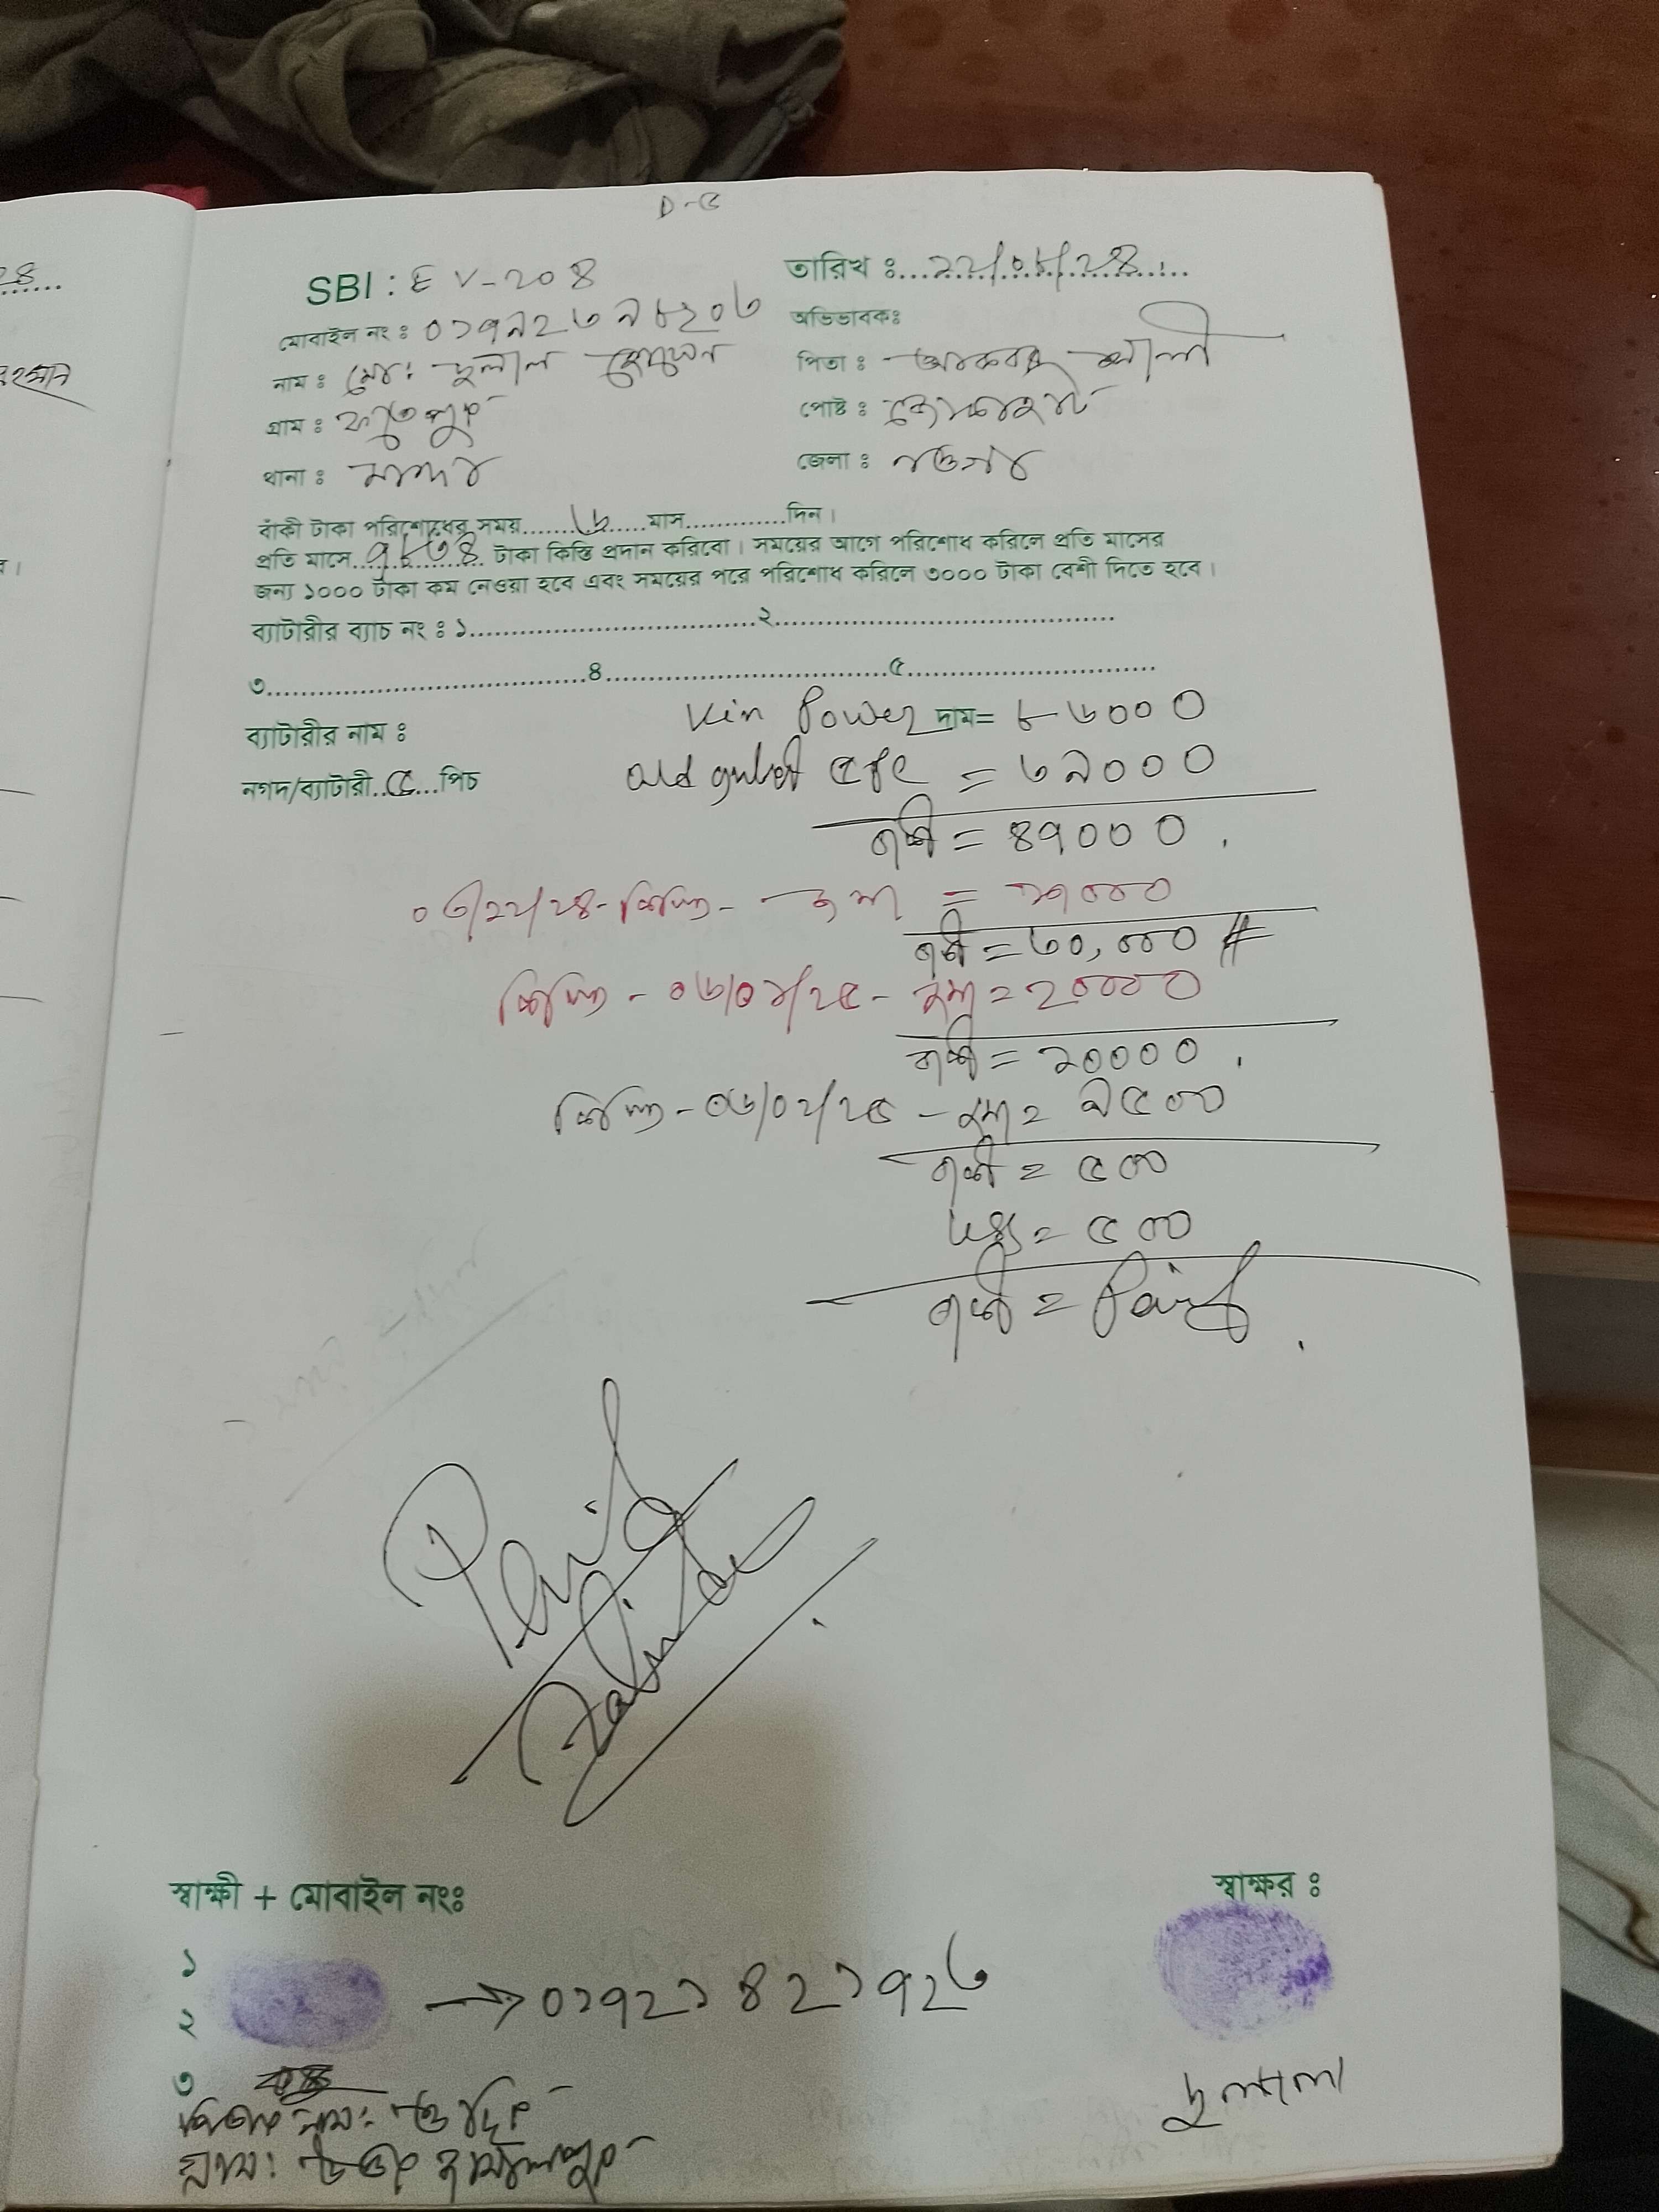 D-৫
SBI : EV-208 তারিখ ঃ 22/০৮/২৪
মোবাইল নং ঃ ০১৭৯২৩৯৮২০৬ অভিভাবকঃ
নাম ঃ মোঃ দুলাল হোসেন পিতা ঃ আকবর আলী
গ্রাম ঃ ফতেপুর পোষ্ট ঃ
থানা ঃ মান্দা জেলা ঃ নওগাঁ
বাঁকী টাকা পরিশোধের সময়.......৬......মাস..............দিন।
প্রতি মাসে..৭৮৩৪.. টাকা কিস্তি প্রদান করিবো। সময়ের আগে পরিশোধ করিলে প্রতি মাসের
জন্য ১০০০ টাকা কম নেওয়া হবে এবং সময়ের পরে পরিশোধ করিলে ৩০০০ টাকা বেশী দিতে হবে।
ব্যাটারীর ব্যাচ নং ঃ ১.................................২.......................................
৩.......................................৪...................................৫...............................
ব্যাটারীর নাম ঃ Kin Power দাম= ৮৬০০০
নগদ/ব্যাটারী..৫...পিচ old ৫ pc = ৩৯০০০
বাকী = ৪৭০০০
কিস্তি - জমা = ১৭০০০
বাকী = ৩০,০০০ #
কিস্তি - ০৬/০১/২৫ - জমা = ২০০০০
বাকী = ১০০০০
কিস্তি - ০৬/০২/২৫ - জমা = ৯৫০০
বাকী = ৫০০
Less = ৫০০
বাকী = Paid
Paid
স্বাক্ষী + মোবাইল নংঃ স্বাক্ষর ঃ
১
২ → ০১৭২১৪২১৭২৬
৩
দুলাল
পিতার নাম:
গ্রাম: উত্তর